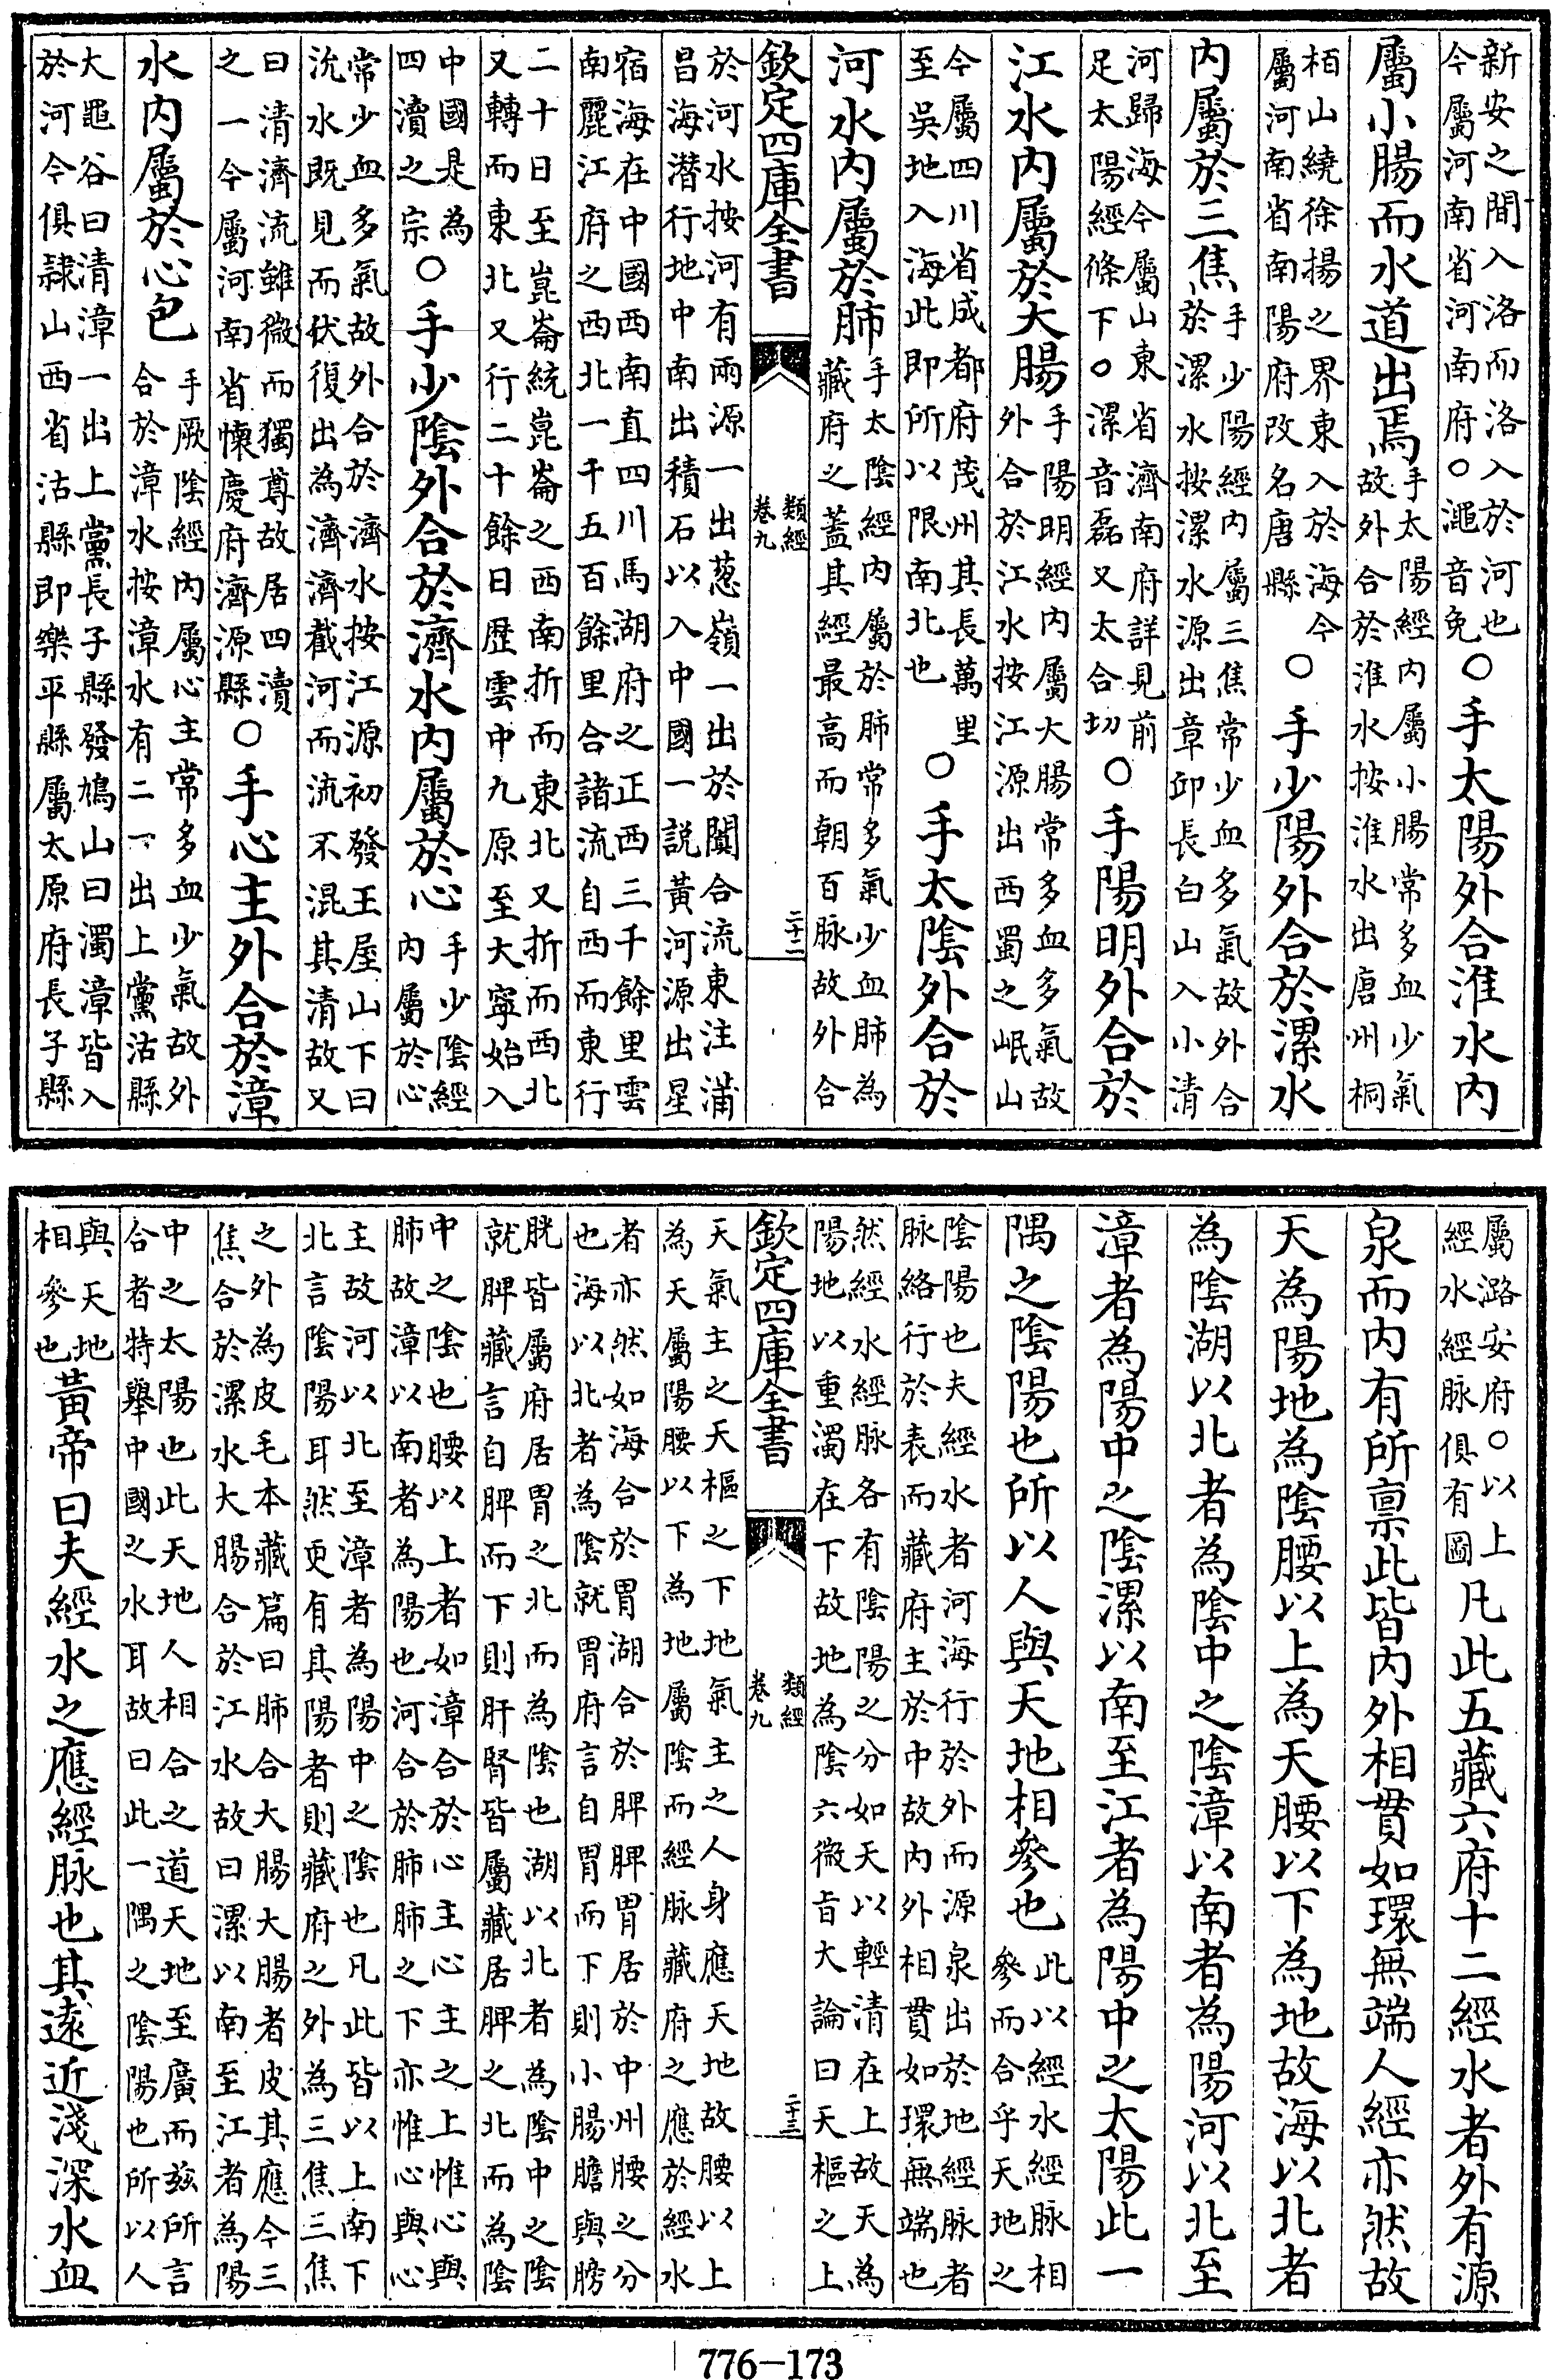 新安之間入洛而洛入於河也
今屬河南省河南府○澠音免○手太陽外合淮水內
屬小腸而水道出焉手太陽經內屬小腸常多血少氣
故外合於淮水按淮水出唐州桐
栢山繞徐揚之界東入於海今
屬河南省南陽府改名唐縣○手少陽外合於漯水
內屬於三焦手少陽經內屬三焦常少血多氣故外合
於漯水按漯水源出章卬長白山入小清
河歸海今屬山東省濟南府詳見前
足太陽經條下○漯音磊又太合切○手陽明外合於
江水內屬於大腸手陽明經內屬大腸常多血多氣故
外合於江水按江源出西蜀之岷山
今屬四川省成都府茂州其長萬里
至吳地入海此即所以限南北也○手太陰外合於
河水內屬於肺手太陰經內屬於肺常多氣少血肺為
藏府之蓋其經最高而朝百脉故外合
欽定四庫全書
類經
卷九
二十二
於河水按河有兩源一出葱嶺一出於闐合流東注蒲
昌海潛行地中南出積石以入中國一説黃河源出星
宿海在中國西南直四川馬湖府之正西三千餘里雲
南麗江府之西北一千五百餘里合諸流自西而東行
二十日至崑崙統崑崙之西南折而東北又折而西北
又轉而東北又行二十餘日歷雲中九原至大寧始入
中國是為
四瀆之宗○手少陰外合於濟水內屬於心手少陰經
內屬於心
常少血多氣故外合於濟水按江源初發王屋山下曰
沇水既見而伏復出為濟濟截河而流不混其清故又
曰清濟流雖微而獨尊故居四瀆
之一今屬河南省懷慶府濟源縣○手心主外合於漳
水內屬於心包手厥陰經內屬心主常多血少氣故外
合於漳水按漳水有二一出上黨沾縣
大黽谷曰清漳一出上黨長子縣發鳩山曰濁漳皆入
於河今俱隷山西省沾縣即樂平縣屬太原府長子縣
屬潞安府○以上
經水經脉俱有圖凡此五藏六府十二經水者外有源
泉而內有所禀此皆內外相貫如環無端人經亦然故
天為陽地為陰腰以上為天腰以下為地故海以北者
為陰湖以北者為陰中之陰漳以南者為陽河以北至
漳者為陽中之陰漯以南至江者為陽中之太陽此一
隅之陰陽也所以人與天地相參也此以經水經脉相
參而合乎天地之
陰陽也夫經水者河海行於外而源泉出於地經脉者
脉絡行於表而藏府主於中故內外相貫如環無端也
然經水經脉各有陰陽之分如天以輕清在上故天為
陽地以重濁在下故地為陰六微旨大論曰天樞之上
欽定四庫全書
類經
卷九
二十三
天氣主之天樞之下地氣主之人身應天地故腰以上
為天屬陽腰以下為地屬陰而經脉藏府之應於經水
者亦然如海合於胃湖合於脾脾胃居於中州腰之分
也海以北者為陰就胃府言自胃而下則小腸膽與膀
胱皆屬府居胃之北而為陰也湖以北者為陰中之陰
就脾藏言自脾而下則肝腎皆屬藏居脾之北而為陰
中之陰也腰以上者如漳合於心主心主之上惟心與
肺故漳以南者為陽也河合於肺肺之下亦惟心與心
主故河以北至漳者為陽中之陰也凡此皆以上南下
北言陰陽耳然更有其陽者則藏府之外為三焦三焦
之外為皮毛本藏篇曰肺合大腸大腸者皮其應今三
焦合於漯水大腸合於江水故曰漯以南至江者為陽
中之太陽也此天地人相合之道天地至廣而兹所言
合者特舉中國之水耳故曰此一隅之陰陽也所以人
與天地
相參也黃帝曰夫經水之應經脉也其逺近淺深水血
776-173